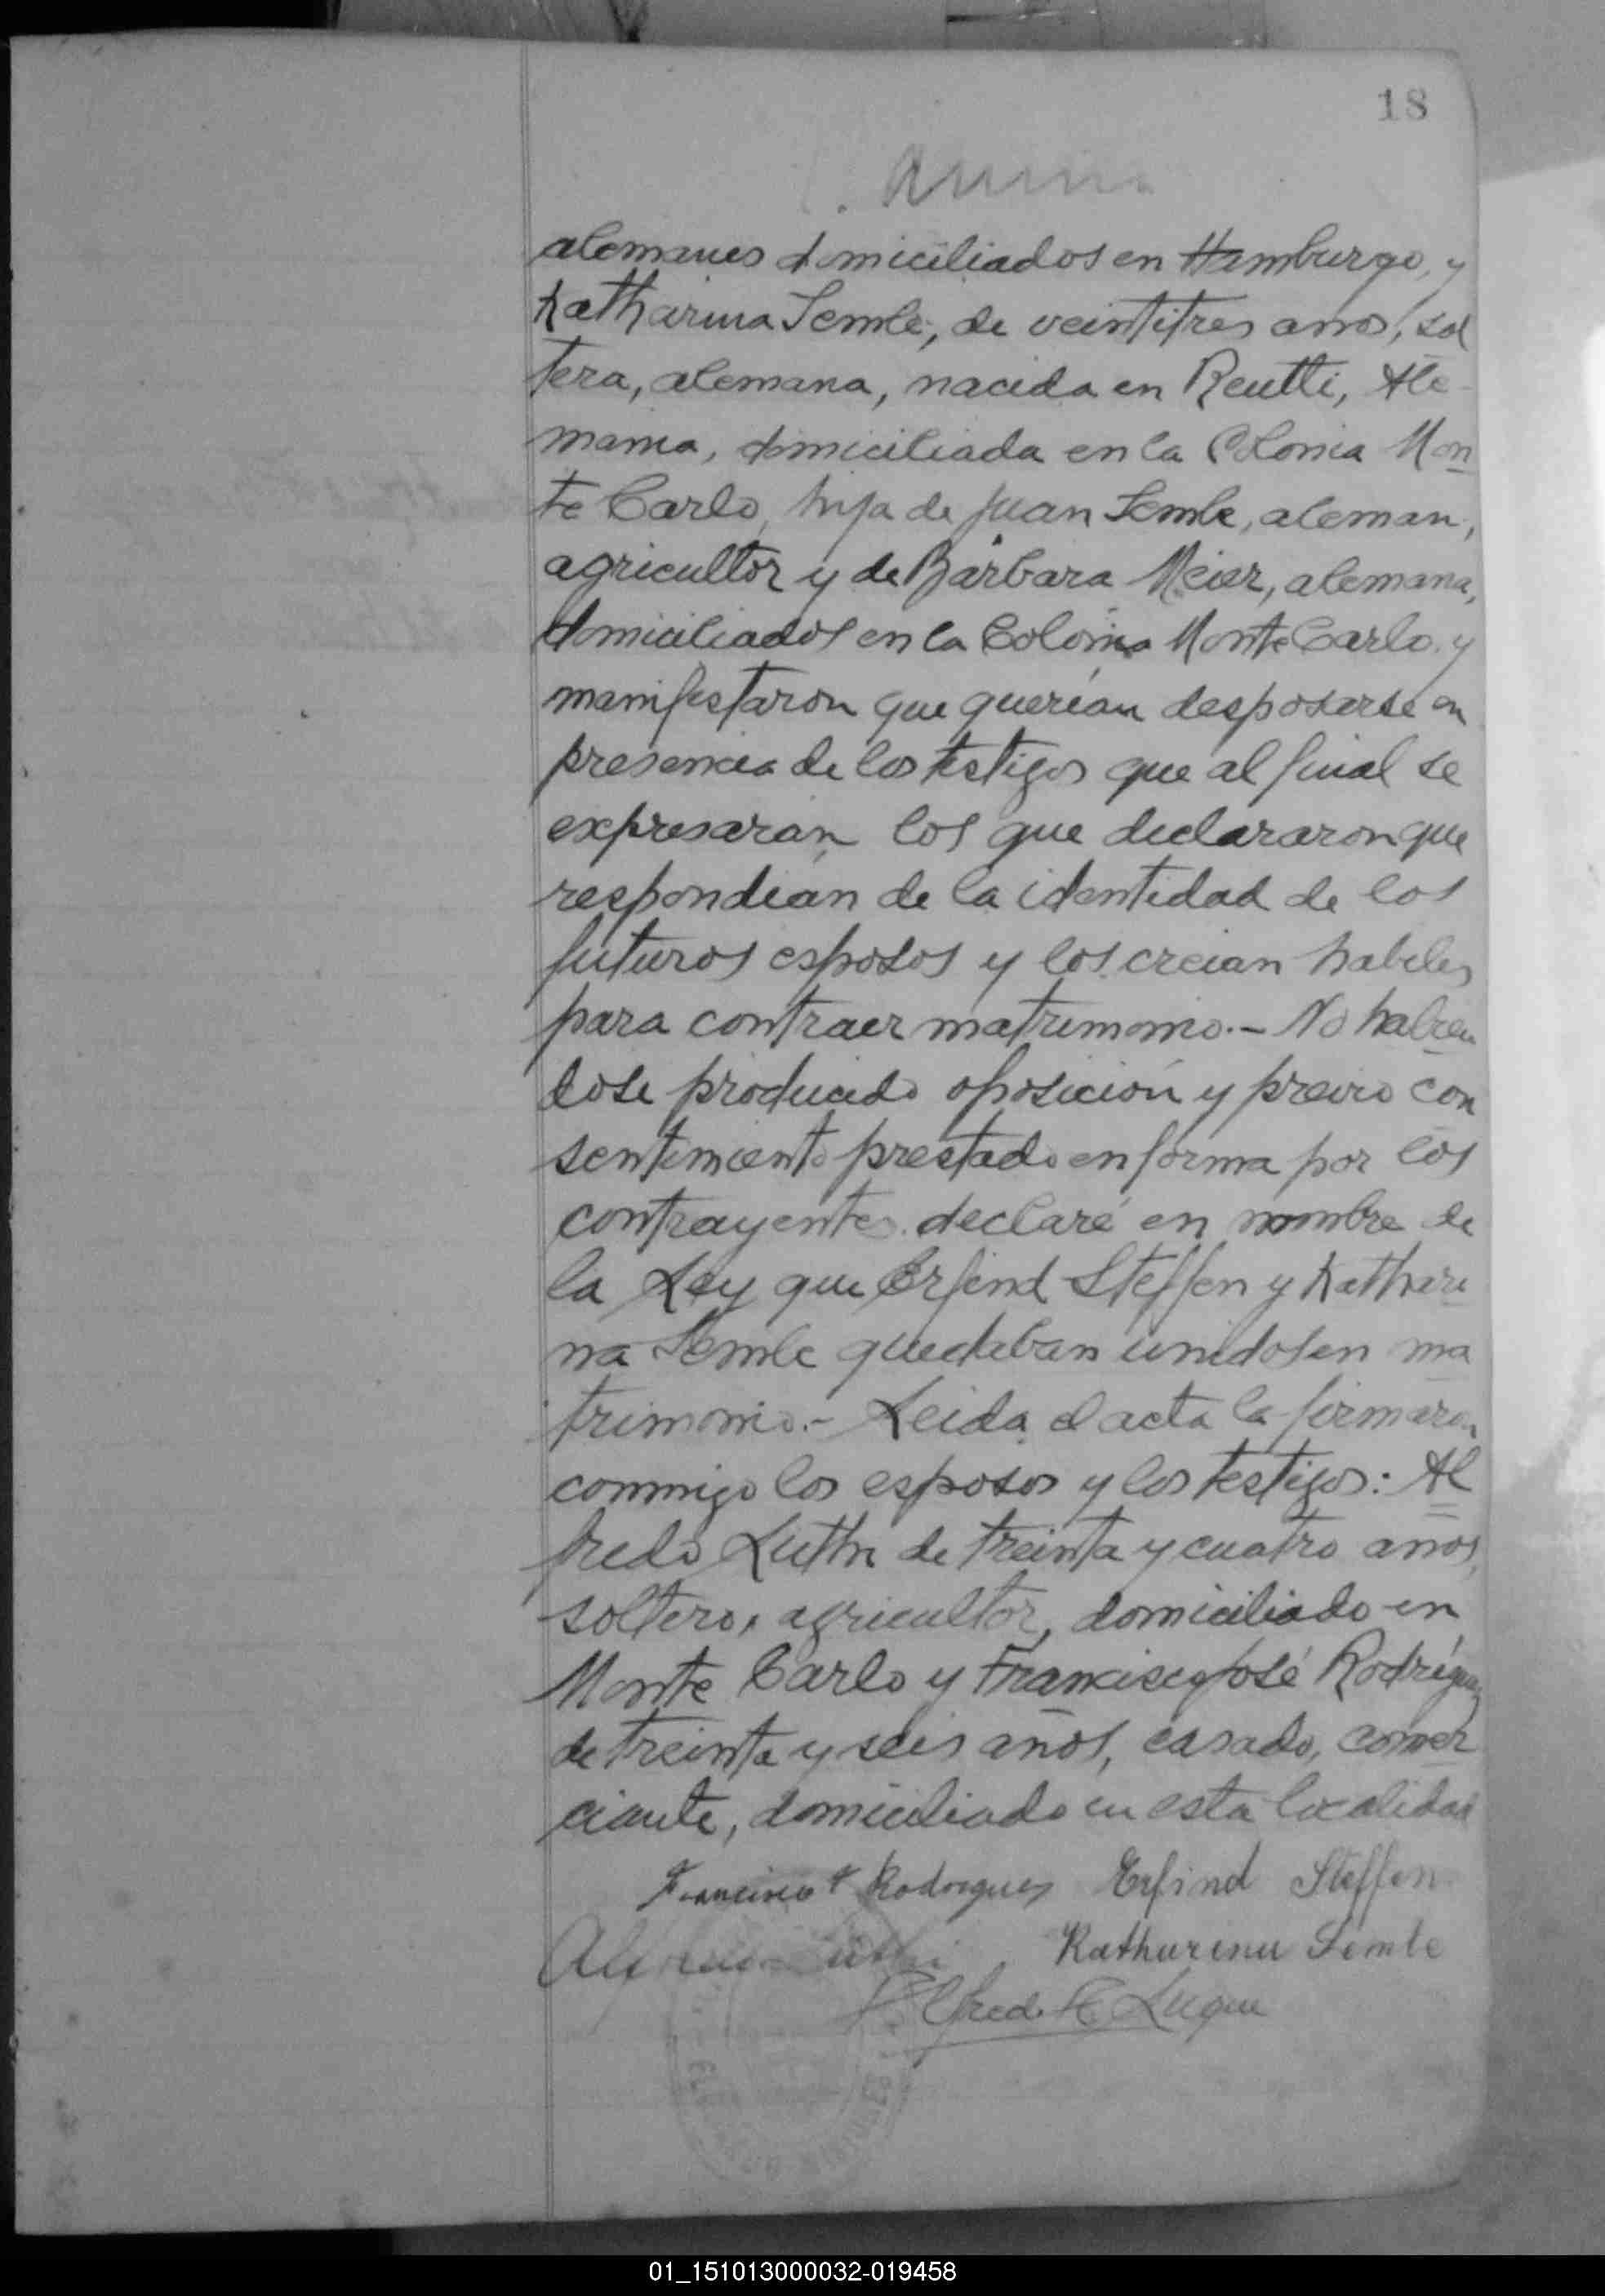 18
alemanes domiciliados en Hamburgo, y
Katharina Semle, de veintitres años, sol
tera, alemana, nacida en Reutti, Ale-
mania, domiciliada en la Colonia Mon
te Carlo, hija de Juan Semle, aleman,
agricultor y de Bárbara Meier, alemana,
domiciliados en la Colonia Monte Carlo. y
manifestaron que querían desposarse en
presencia de los testigos que al final se
expresarán, los que declararon que
respondían de la identidad de los
futuros esposos y los creían habiles
para contraer matrimonio.- No habien
dose producido oposición y previo con
sentimiento prestado en forma por los
contrayentes declaré en nombre de
la Ley que Erfind Steffen y Kathari
na Semle quedaban unidos en ma
trimonio.- Leida el acta la firmaron
conmigo los esposos y los testigos: Al
fredo Luthi de treinta y cuatro años,
soltero, agricultor, domiciliado en
Monte Carlo y Francisco José Rodríguez
de treinta y seis años, casado, comer
ciante, domiciliado en esta localidad
Francisco J Rodrigues Erfind Steffen
Katharina Semle
Alfredo C Luque
01_151013000032-019458